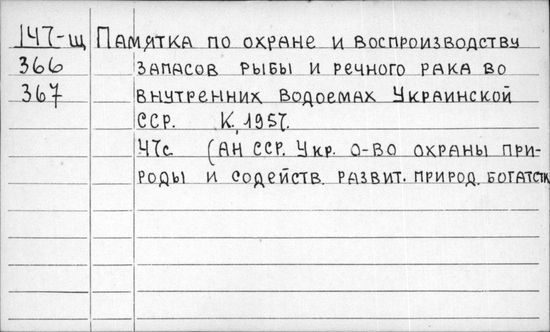 147-щ Памятка по охране и воспроизводству
366 запасов рыбы и речного рака во
367 внутренних водоемах Украинской
ССР. К., 1957.
47с. (АН ССР. Укр. о-во охраны при-
роды и содейств. развит. природ. богатств